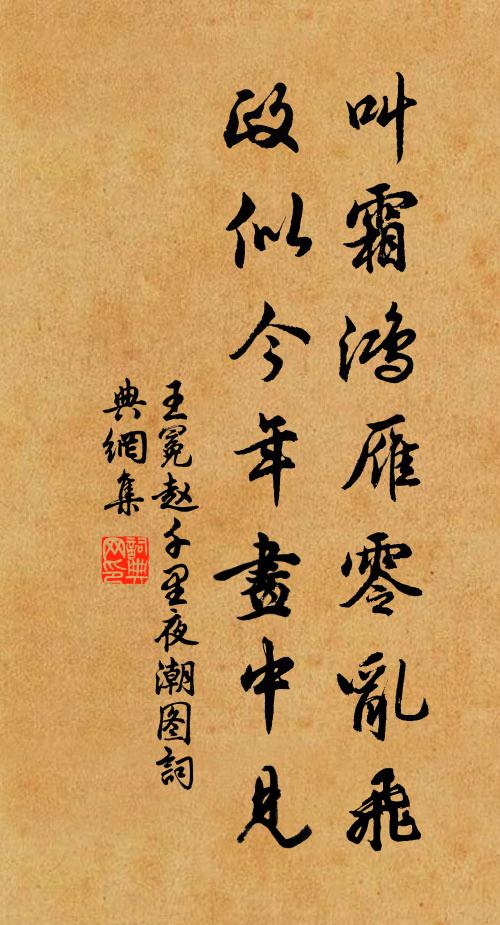 叫霜鸿雁零亂飛
政似今年畫中見
王冕赵千里夜潮图詞
典網集
詞典
网印